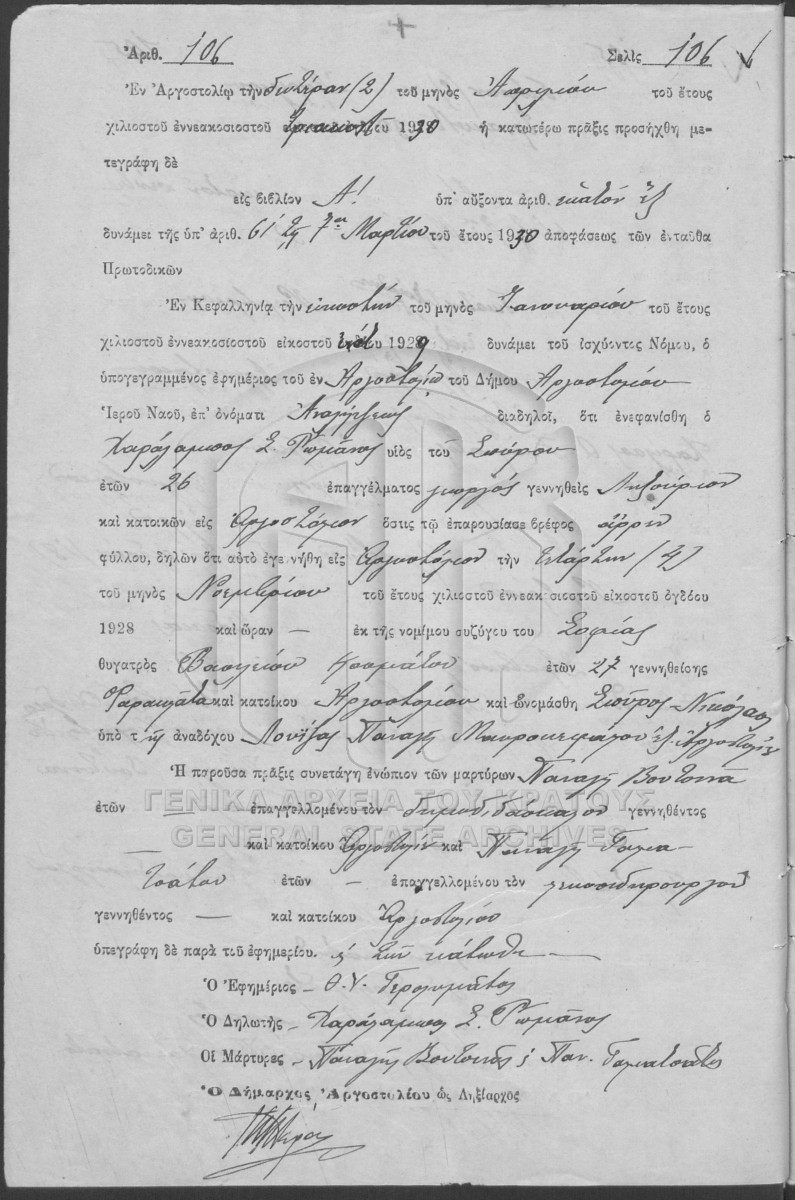 Ἀριθ. 106 Σελὶς 106
Ἐν Ἀργοστολίῳ τὴν δευτέραν (2) τοῦ μηνὸς Ἀπριλίου τοῦ ἔτους
χιλιοστοῦ ἐννεακοσιοστοῦ 1930 ἡ κατωτέρω πρᾶξις προσήχθη με-
τεγράφη δὲ
εἰς βιβλίον Α! ὑπ' αὔξοντα ἀριθ. ἑκατόν ἕξ
δυνάμει τῆς ὑπ' ἀριθ. 61 τῆς 7ης Μαρτίου τοῦ ἔτους 1930 ἀποφάσεως τῶν ἐνταῦθα
Πρωτοδικῶν
Ἐν Κεφαλληνίᾳ τὴν εἰκοστὴν τοῦ μηνὸς Ἰανουαρίου τοῦ ἔτους
χιλιοστοῦ ἐννεακοσιοστοῦ εἰκοστοῦ 1929 δυνάμει τοῦ ἰσχύοντος Νόμου, ὁ
ὑπογεγραμμένος ἐφημέριος τοῦ ἐν Ἀργοστολίῳ τοῦ Δήμου Ἀργοστολίου
Ἱεροῦ Ναοῦ, ἐπ' ὀνόματι Ἀναλήψεως διαδηλοῖ, ὅτι ἐνεφανίσθη ὁ
Χαράλαμπος Σ. Ρωμάνος υἱὸς τοῦ Σπύρου
ἐτῶν 26 ἐπαγγέλματος γεωργός γεννηθεὶς Ληξούριον
καὶ κατοικῶν εἰς Ἀργοστόλιον ὅστις τῷ ἐπαρουσίασε βρέφος ἄρρεν
φύλλου, δηλῶν ὅτι αὐτὸ ἐγεννήθη εἰς Ἀργοστόλιον τὴν τετάρτην (4)
τοῦ μηνὸς Νοεμβρίου τοῦ ἔτους χιλιοστοῦ ἐννεακ σιοστοῦ εἰκοστοῦ ὀγδόου
1928 καὶ ὥραν — ἐκ τῆς νομίμου συζύγου του Σοφίας
θυγατρὸς Βασιλείου Κοσμάτου ἐτῶν 27 γεννηθείσης
Φαρακλάτα καὶ κατοίκου Ἀργοστολίου καὶ ὠνομάσθη Σπύρος-Νικόλαος
ὑπὸ τῆς ἀναδόχου Λουΐζας Παναγῆ Μαυροκεφάλου ἐξ Ἀργοστολίου
Ἡ παροῦσα πρᾶξις συνετάγη ἐνώπιον τῶν μαρτύρων Παναγῆ Βουτσινᾶ
ἐτῶν — ἐπαγγελλομένου τὸν δημοδιδάσκαλον γεννηθέντος
— καὶ κατοίκου Ἀργοστολίου καὶ Παναγῆ Γαλια-
τσάτου ἐτῶν — ἐπαγγελλομένου τὸν λευκοσιδηρουργόν
γεννηθέντος — καὶ κατοίκου Ἀργοστολίου
ὑπεγράφη δὲ παρὰ τοῦ ἐφημερίου. κ τῶν κάτωθι —
Ὁ Ἐφημέριος — Θ. Ν. Γερουλιμᾶτος
Ὁ Δηλωτὴς — Χαράλαμπος Σ. Ρωμάνος
Οἱ Μάρτυρες — Παναγῆς Βουτσινᾶς κ Παν. Γαλιατσάτος
Ὁ Δήμαρχος Ἀργοστολίου ὡς Ληξίαρχος
ΓΕΝΙΚΑ ΑΡΧΕΙΑ ΤΟΥ ΚΡΑΤΟΥΣ
GENERAL STATE ARCHIVES